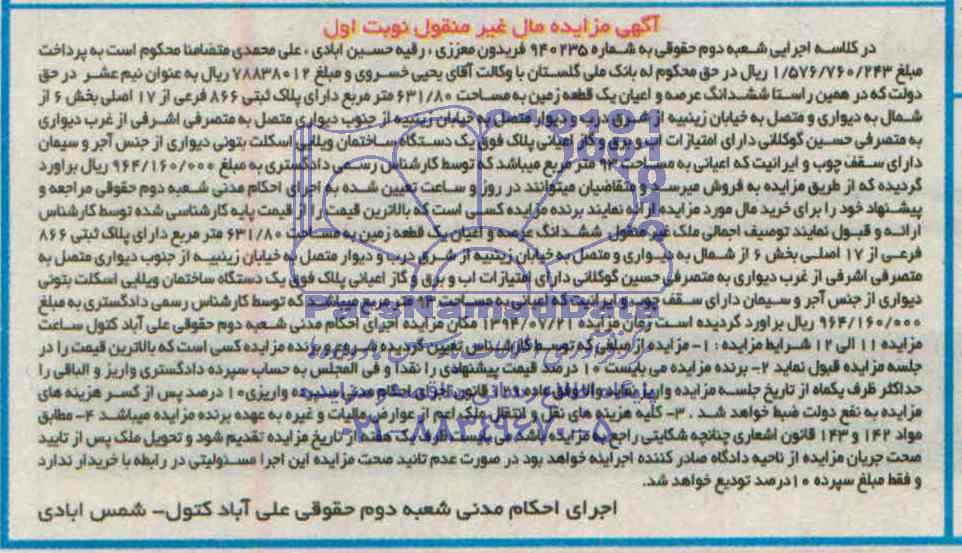 آگهی مزایده مال غیر منقول نوبت اول
در کلاسه اجرایی شعبه دوم حقوقی به شماره ۹۴۰۲۳۵ فریدون معززی ، رقیه حسین ابادی ، علی محمدی متضامنا محکوم است به پرداخت
مبلغ ۱/۵۷۶/۷۶۰/۲۴۳ ریال در حق محکوم له بانک ملی گلستان با وکالت آقای یحیی خسروی و مبلغ ۷۸۸۳۸۰۱۲ ریال به عنوان نیم عشر در حق
دولت که در همین راستا ششدانگ عرصه و اعیان یک قطعه زمین به مساحت ۶۳۱/۸۰ متر مربع دارای پلاک ثبتی ۸۶۶ فرعی از ۱۷ اصلی بخش ۶ از
شمال به دیواری و متصل به خیابان زینبیه از شرق درب و دیوار متصل به خیابان زینبیه از جنوب دیواری متصل به متصرفی اشرفی از غرب دیواری
به متصرفی حسین گوکلانی دارای امتیازات اب و برق و گاز اعیانی پلاک فوق یک دستگاه ساختمان ویلایی اسکلت بتونی دیواری از جنس آجر و سیمان
دارای سقف چوب و ایرانیت که اعیانی به مساحت ۹۳ متر مربع میباشد که توسط کارشناس رسمی دادگستری به مبلغ ۹۶۴/۱۶۰/۰۰۰ ریال براورد
گردیده که از طریق مزایده به فروش میرسد و متقاضیان میتوانند در روز و ساعت تعیین شده به اجرای احکام مدنی شعبه دوم حقوقی مراجعه و
پیشنهاد خود را برای خرید مال مورد مزایده ارائه نمایند برنده مزایده کسی است که بالاترین قیمت را از قیمت پایه کارشناسی شده توسط کارشناس
ارائه و قبول نمایند توصیف اجمالی ملک غیر منقول ششدانگ عرصه و اعیان یک قطعه زمین به مساحت ۶۳۱/۸۰ متر مربع دارای پلاک ثبتی ۸۶۶
فرعی از ۱۷ اصلی بخش ۶ از شمال به دیواری و متصل به خیابان زینبیه از شرق درب و دیوار متصل به خیابان زینبیه از جنوب دیواری متصل به
متصرفی اشرفی از غرب دیواری به متصرفی حسین گوکلانی دارای امتیازات اب و برق و گاز اعیانی پلاک فوق یک دستگاه ساختمان ویلایی اسکلت بتونی
دیواری از جنس آجر و سیمان دارای سقف چوب و ایرانیت که اعیانی به مساحت ۹۳ متر مربع میباشد که توسط کارشناس رسمی دادگستری به مبلغ
۹۶۴/۱۶۰/۰۰۰ ریال براورد گردیده است زمان مزایده ۱۳۹۴/۰۷/۲۱ مکان مزایده اجرای احکام مدنی شعبه دوم حقوقی علی آباد کتول ساعت
مزایده ۱۱ الی ۱۲ شرایط مزایده : ۱- مزایده از مبلغی که توسط کارشناس تعیین گردیده شروع و برنده مزایده کسی است که بالاترین قیمت را در
جلسه مزایده قبول نماید ۲- برنده مزایده می بایست ۱۰ درصد قیمت پیشنهادی را نقدا و فی المجلس به حساب سپرده دادگستری واریز و الباقی را
حداکثر ظرف یکماه از تاریخ جلسه مزایده واریز نماید والا وفق ماده ۱۲۹ قانون اجرای احکام مدنی سپرده واریزی ۱۰ درصد پس از کسر هزینه های
مزایده به نفع دولت ضبط خواهد شد . ۳- کلیه هزینه های نقل و انتقال ملک اعم از عوارض مالیات و غیره به عهده برنده مزایده میباشد ۴- مطابق
مواد ۱۴۲ و ۱۴۳ قانون اشعاری چنانچه شکایتی راجع به مزایده باشد می بایست ظرف یک هفته از تاریخ مزایده تقدیم شود و تحویل ملک پس از تایید
صحت جریان مزایده از ناحیه دادگاه صادر کننده اجرائیه خواهد بود در صورت عدم تائید صحت مزایده این اجرا مسئولیتی در رابطه با خریدار ندارد
و فقط مبلغ سپرده ۱۰ درصد تودیع خواهد شد.
اجرای احکام مدنی شعبه دوم حقوقی علی آباد کتول- شمس ابادی
ParsNamadData
۰۲۱-۸۸۳۴۹۶۷۰-۵